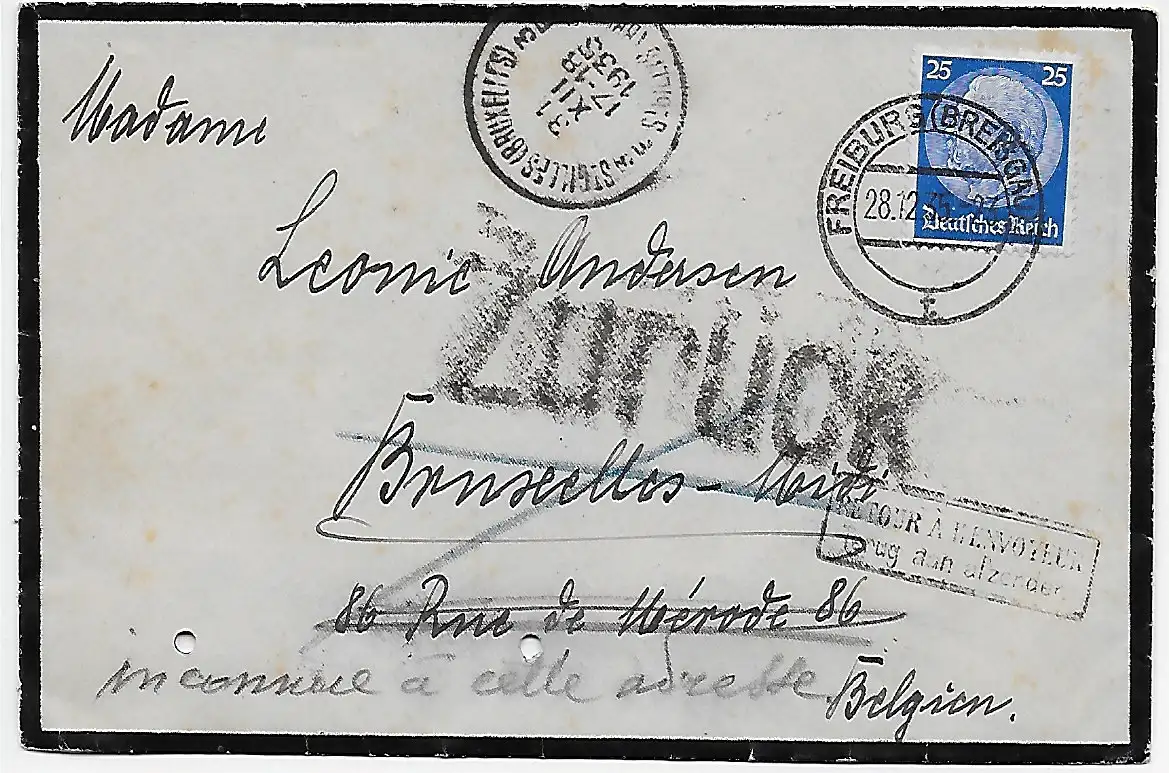 Madame
ST GILLES (BRUXELLES)
31
XII
17-18
1935
25 25
Deutsches Reich
FREIBURG (BREISGAU)
28.12.35
Leonie Andersen
Zurück
Bruxelles-Midi
RETOUR À L'ENVOYEUR
terug aan afzender
86 Rue de Mérode 86
inconnue à cette adresse
Belgien.